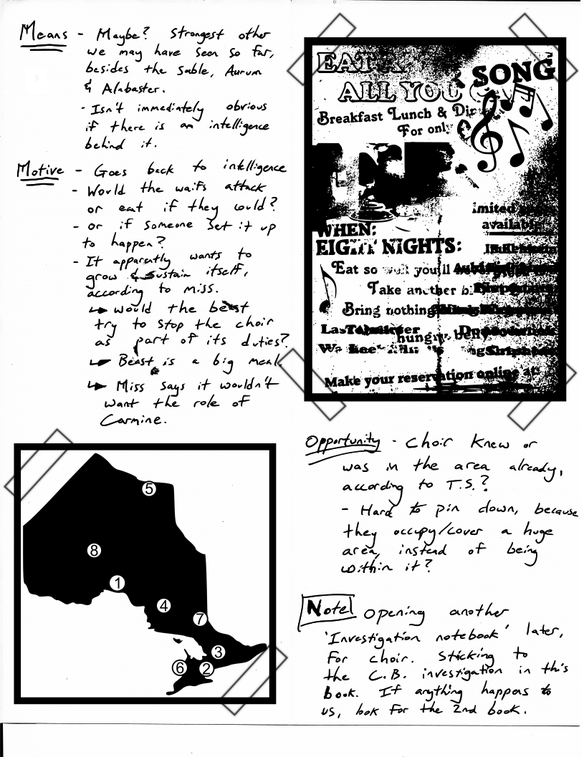 Means - Maybe? Strongest other
we may have seen so far,
besides the Sable, Aurum
& Alabaster.
- Isn't immediately obvious
if there is an intelligence
behind it.
Motive - Goes back to intelligence
- Would the waifs attack
or eat if they could?
- or if someone set it up
to happen?
- It apparently wants to
grow & sustain itself,
according to Miss.
↳ would the beast
try to stop the choir
as part of its duties?
↳ Beast is a big meal.
↳ Miss says it wouldn't
want the role of
Carmine.
EAT
ALL YOU
SONG
Breakfast Lunch &
For only
available
WHEN:
EIGHT NIGHTS:
Eat so you'll
Take another
Bring nothing
hungry belly
Make your reservation online at
5
8
1
4
7
3
6
2
Opportunity - Choir knew or
was in the area already,
according to T.S.?
- Hard to pin down, because
they occupy/cover a huge
area, instead of being
within it?
Note! Opening another
'Investigation notebook' later,
For choir. Sticking to
the C.B. investigation in this
book. If anything happens to
us, look for the 2nd book.